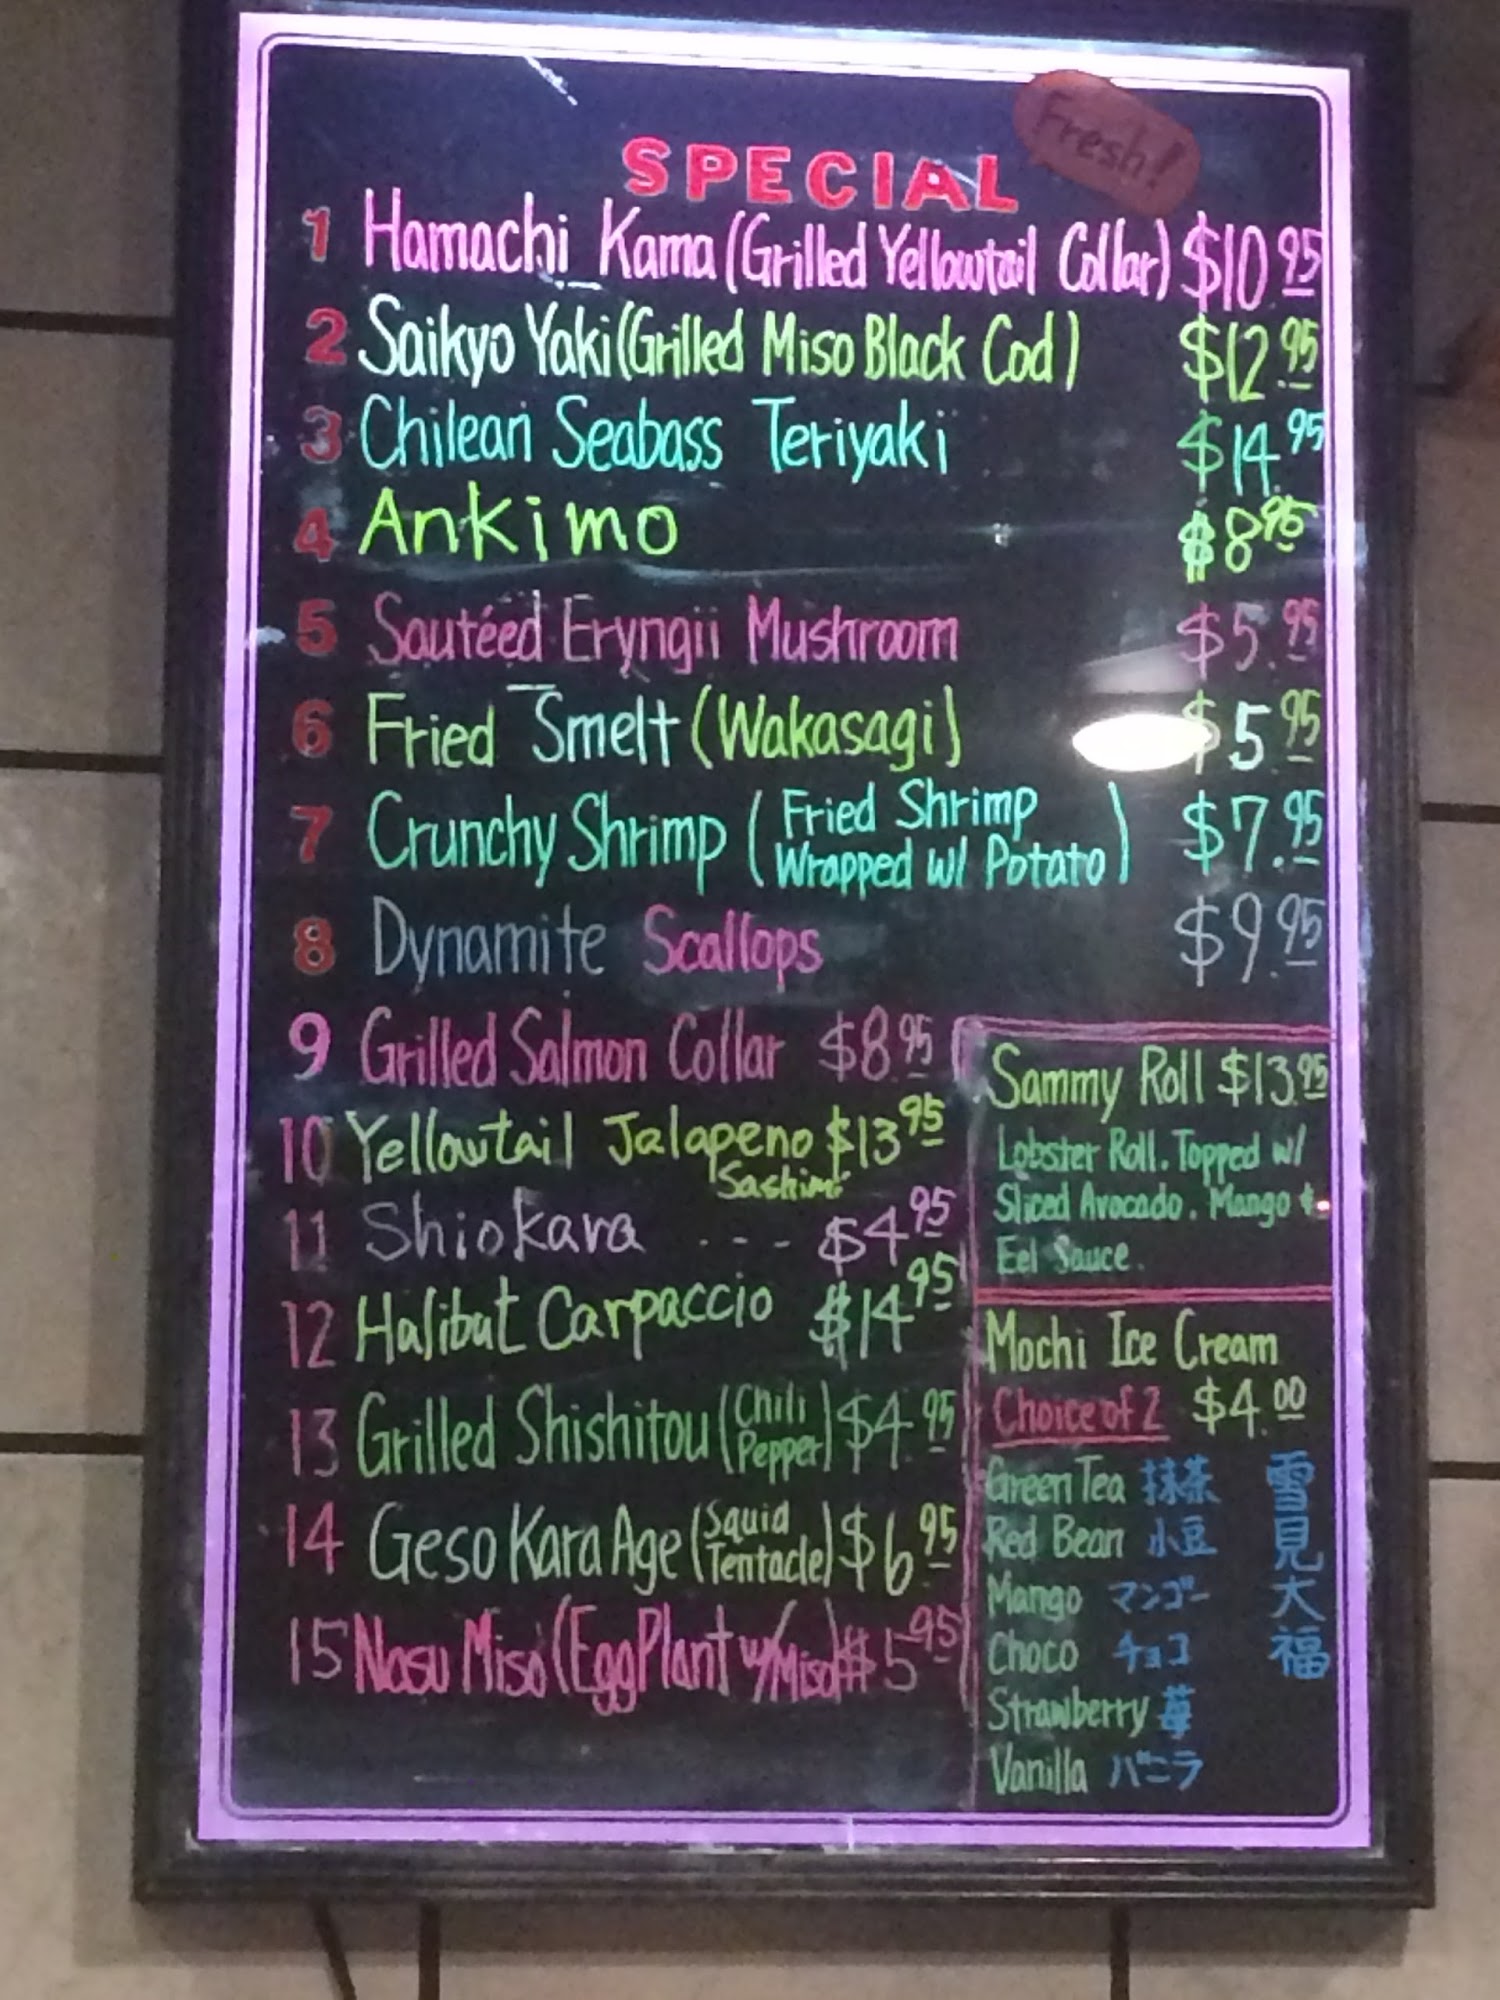 Fresh!
SPECIAL
1 Hamachi Kama (Grilled Yellowtail Collar) $10.95
2 Saikyo Yaki (Grilled Miso Black Cod) $12.95
3 Chilean Seabass Teriyaki $14.95
4 Ankimo $8.95
5 Sautéed Eryngii Mushroom $5.95
6 Fried Smelt (Wakasagi) $5.95
7 Crunchy Shrimp (Fried Shrimp
Wrapped w/ Potato) $7.95
8 Dynamite Scallops $9.95
9 Grilled Salmon Collar $8.95
10 Yellowtail Jalapeno $13.95
Sashimi
11 Shiokara --- $4.95
12 Halibut Carpaccio $14.95
13 Grilled Shishitou (Chili
Pepper) $4.95
14 Geso Kara Age (Squid
Tentacle) $6.95
15 Nasu Miso (EggPlant w/Miso) $5.95
Sammy Roll $13.95
Lobster Roll. Topped w/
Sliced Avocado. Mango &
Eel Sauce.
Mochi Ice Cream
Choice of 2 $4.00
Green Tea 抹茶
Red Bean 小豆
Mango マンゴー
Choco チョコ
Strawberry 苺
Vanilla バニラ
雪見大福